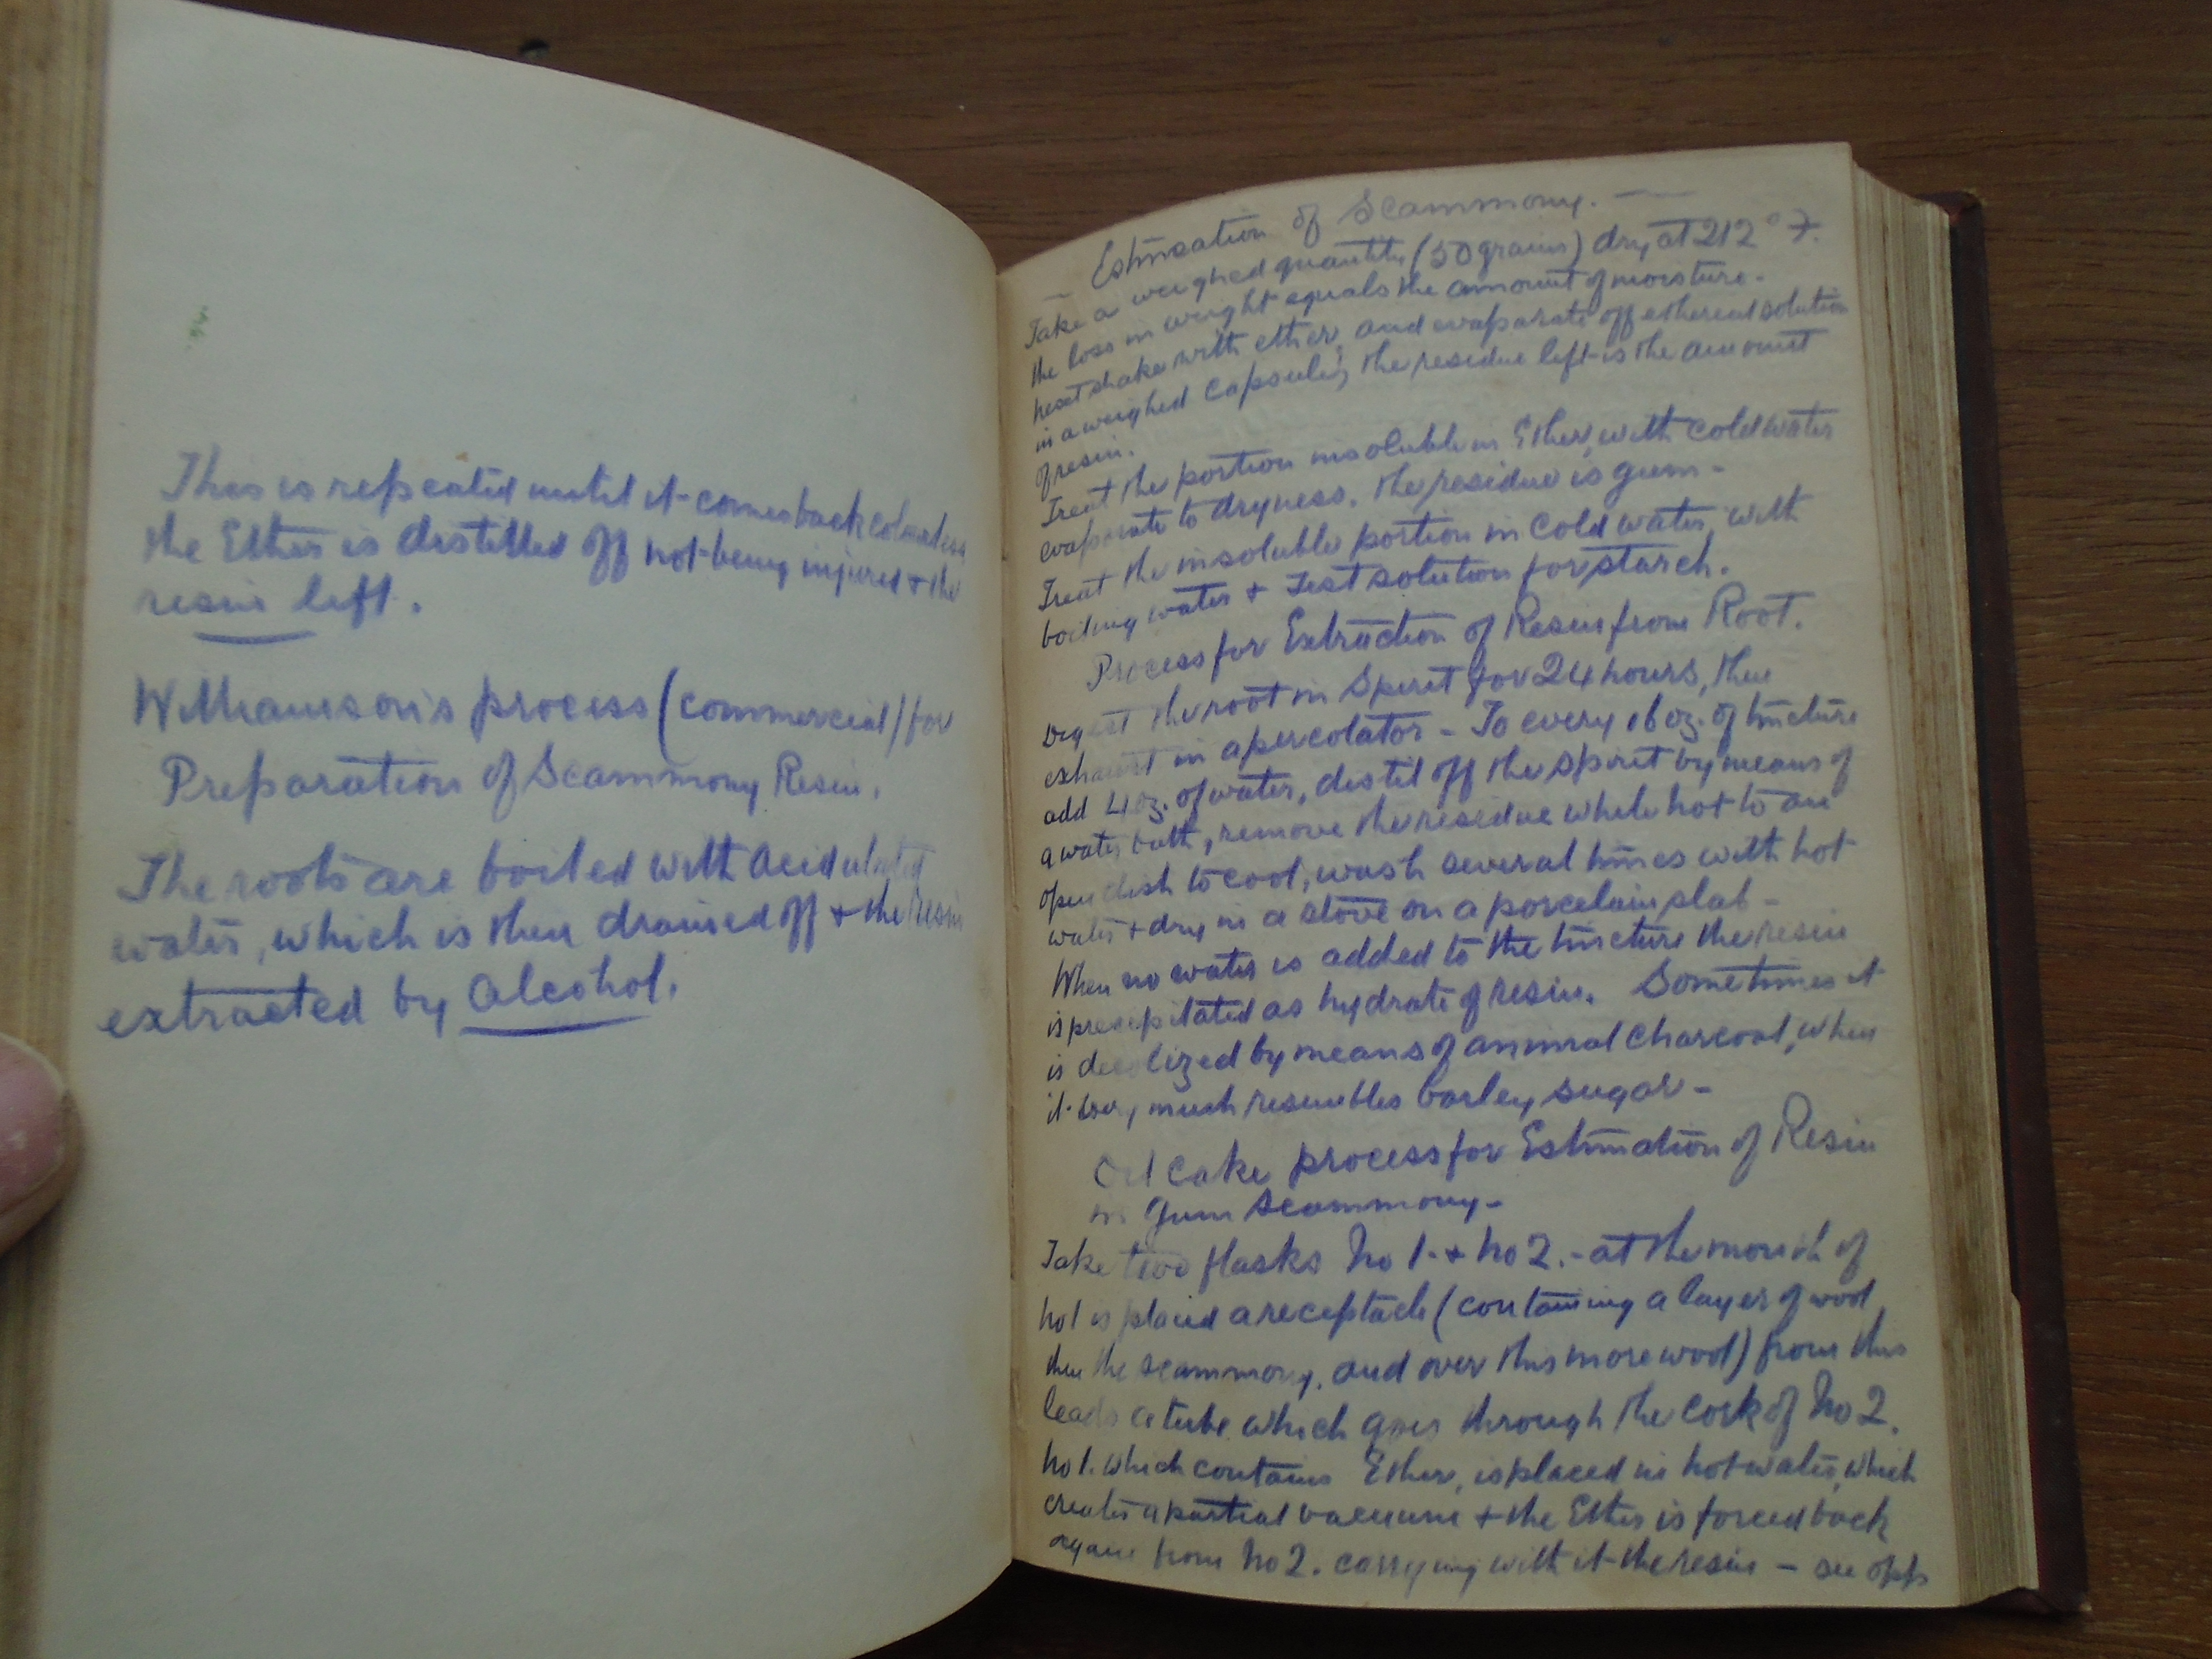 This is repeated until it comes back colourless
the Ether is distilled off not being injured + the
resin left.
Williamson's process (commercial) for
Preparation of Scammony Resin.
The roots are boiled with acidulated
water, which is then drained off + the resin
extracted by Alcohol.
Estimation of Scammony.
Take a weighed quantity (50 grains) dry at 212° F.
the loss in weight equals the amount of moisture.
next shake with ether, and evaporate off ethereal solution
in a weighed capsule, the residue left is the amount
of resin.
Treat the portion insoluble in Ether, with cold water
evaporate to dryness. the residue is gum -
Treat the insoluble portion in Cold water, with
boiling water + Test solution for starch.
Process for Extraction of Resin from Root.
Digest the root in Spirit for 24 hours, then
exhaust in a percolator - To every 16 oz. of tincture
add 4 oz. of water, distil off the spirit by means of
a water bath, remove the residue while hot to an
open dish to cool, wash several times with hot
water + dry in a stove on a porcelain slab -
When no water is added to the tincture the resin
is precipitated as hydrate of resin. Sometimes it
is decolized by means of animal Charcoal, when
it very much resembles barley sugar -
Oil Cake process for Estimation of Resin
in Gum Scammony -
Take two flasks No 1. + No 2. - at the mouth of
No 1 is placed a receptacle (containing a layer of wool
then the scammony, and over this more wool) from this
leads a tube which goes through the cork of No 2.
No 1. which contains Ether, is placed in hot water, which
creates a partial vacuum + the Ether is forced back
again from No 2. carrying with it the resin - see opp